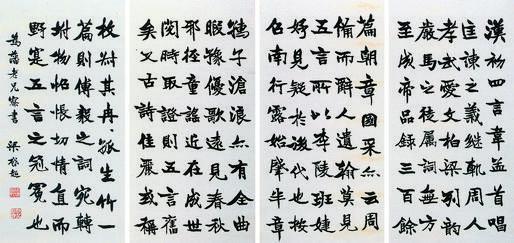 漢初四言韋孟首唱
匡諫之義繼軌周人
孝武愛文柏梁列韵
嚴馬之徒屬詞無方
至成帝品錄三百餘
篇朝章國采亦云周
備而辭人遺翰莫見
五言所以李陵班婕
妤見疑於後代也按
召南行露始肇半章
孺子滄浪亦有全曲
暇豫優歌遠見春秋
邪徑童謠近在成世
閱時取證則五言舊
矣又古詩佳麗或稱
枚叔其冉々孤生竹一
篇則傅毅之詞宛轉
附物怊悵切情直而
野寔五言之冠冕也
老兄察書 梁啟超